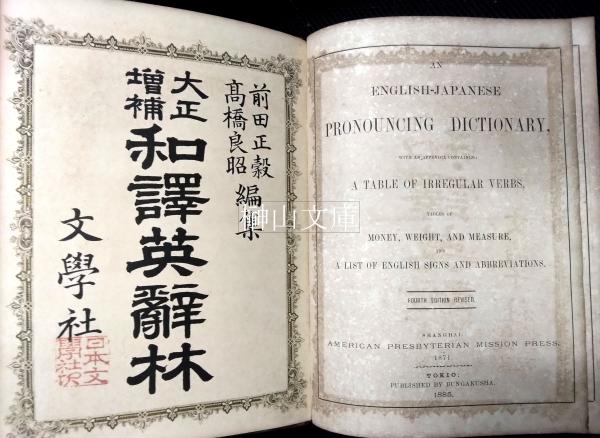 前田正穀
髙橋良昭
編集
大正
增補
和譯英辭林
文學社
AN
ENGLISH-JAPANESE
PRONOUNCING DICTIONARY,
WITH AN APPENDIX CONTAINING
A TABLE OF IRREGULAR VERBS,
TABLES OF
MONEY, WEIGHT, AND MEASURE,
AND
A LIST OF ENGLISH SIGNS AND ABBREVIATIONS.
FOURTH EDITION REVISED.
SHANGHAI:
AMERICAN PRESBYTERIAN MISSION PRESS.
1871.
TOKIO:
PUBLISHED BY BUNGAKUSHA.
1885.
榊山文庫